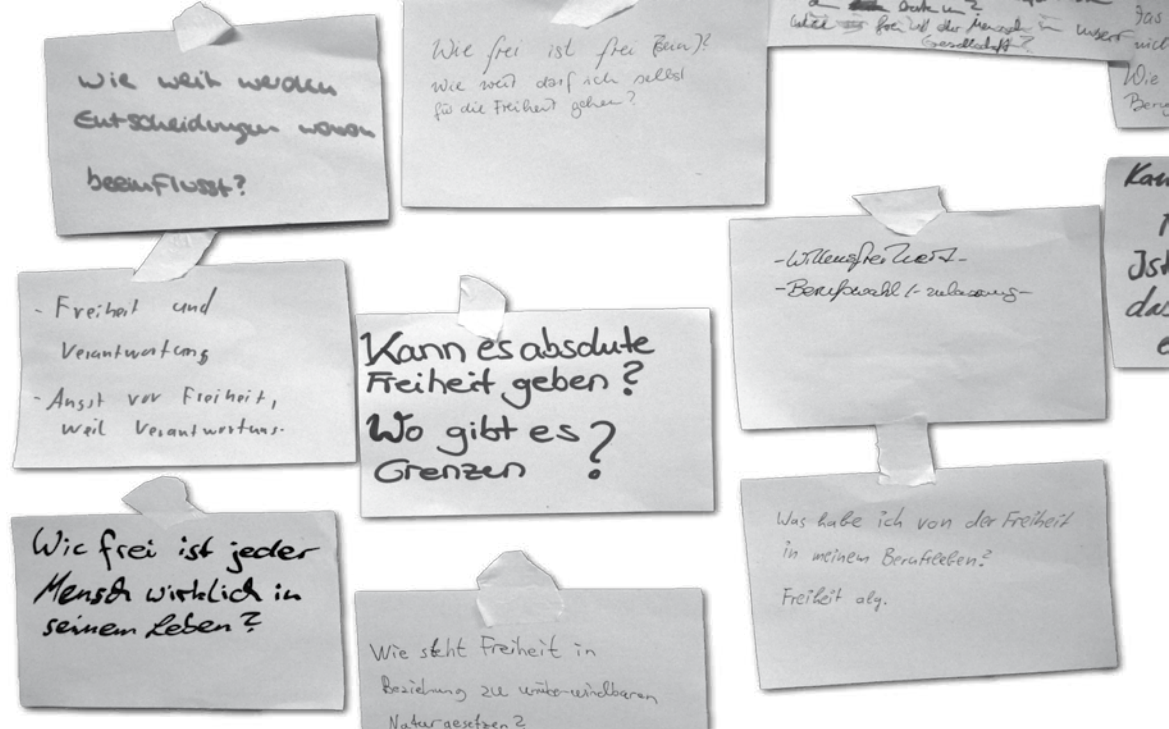 Wie weit werden
Entscheidungen wovon
beeinflusst?
Wie frei ist frei (sein)?
Wie weit darf ich selbst
für die Freiheit gehen?
frei ist der Mensch in unserer
Gesellschaft?
das
nicht
Wie
- Freiheit und
Verantwortung
- Angst vor Freiheit,
weil Verantwortung.
Kann es absolute
Freiheit geben?
Wo gibt es
Grenzen ?
- Willensfreiheit -
- Berufswahl / - zulassung -
Ist
Wie frei ist jeder
Mensch wirklich in
seinem Leben?
Wie steht Freiheit in
Beziehung zu unüberwindbaren
Naturgesetzen?
Was habe ich von der Freiheit
in meinem Berufsleben?
Freiheit alg.